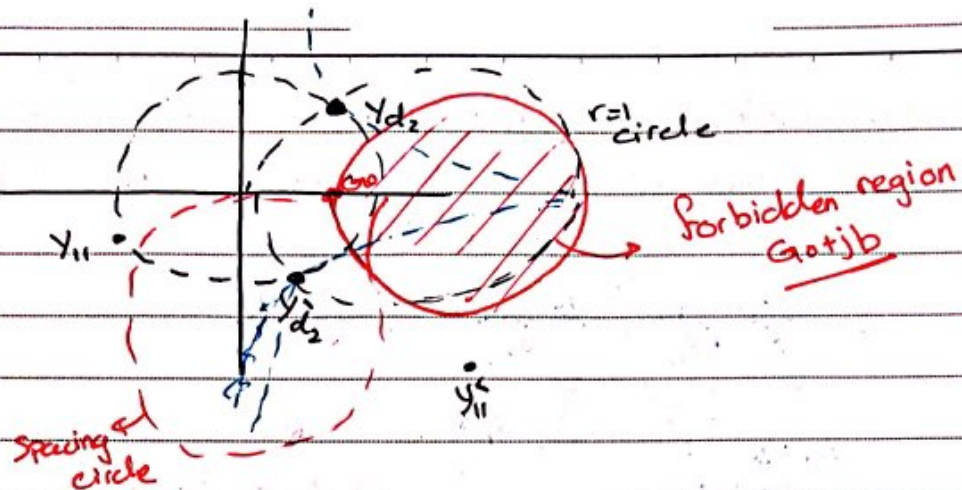 yd2
r=1
circle
G0
forbidden region
G0+jb
y11
y'd2
y11
Spacing
circle